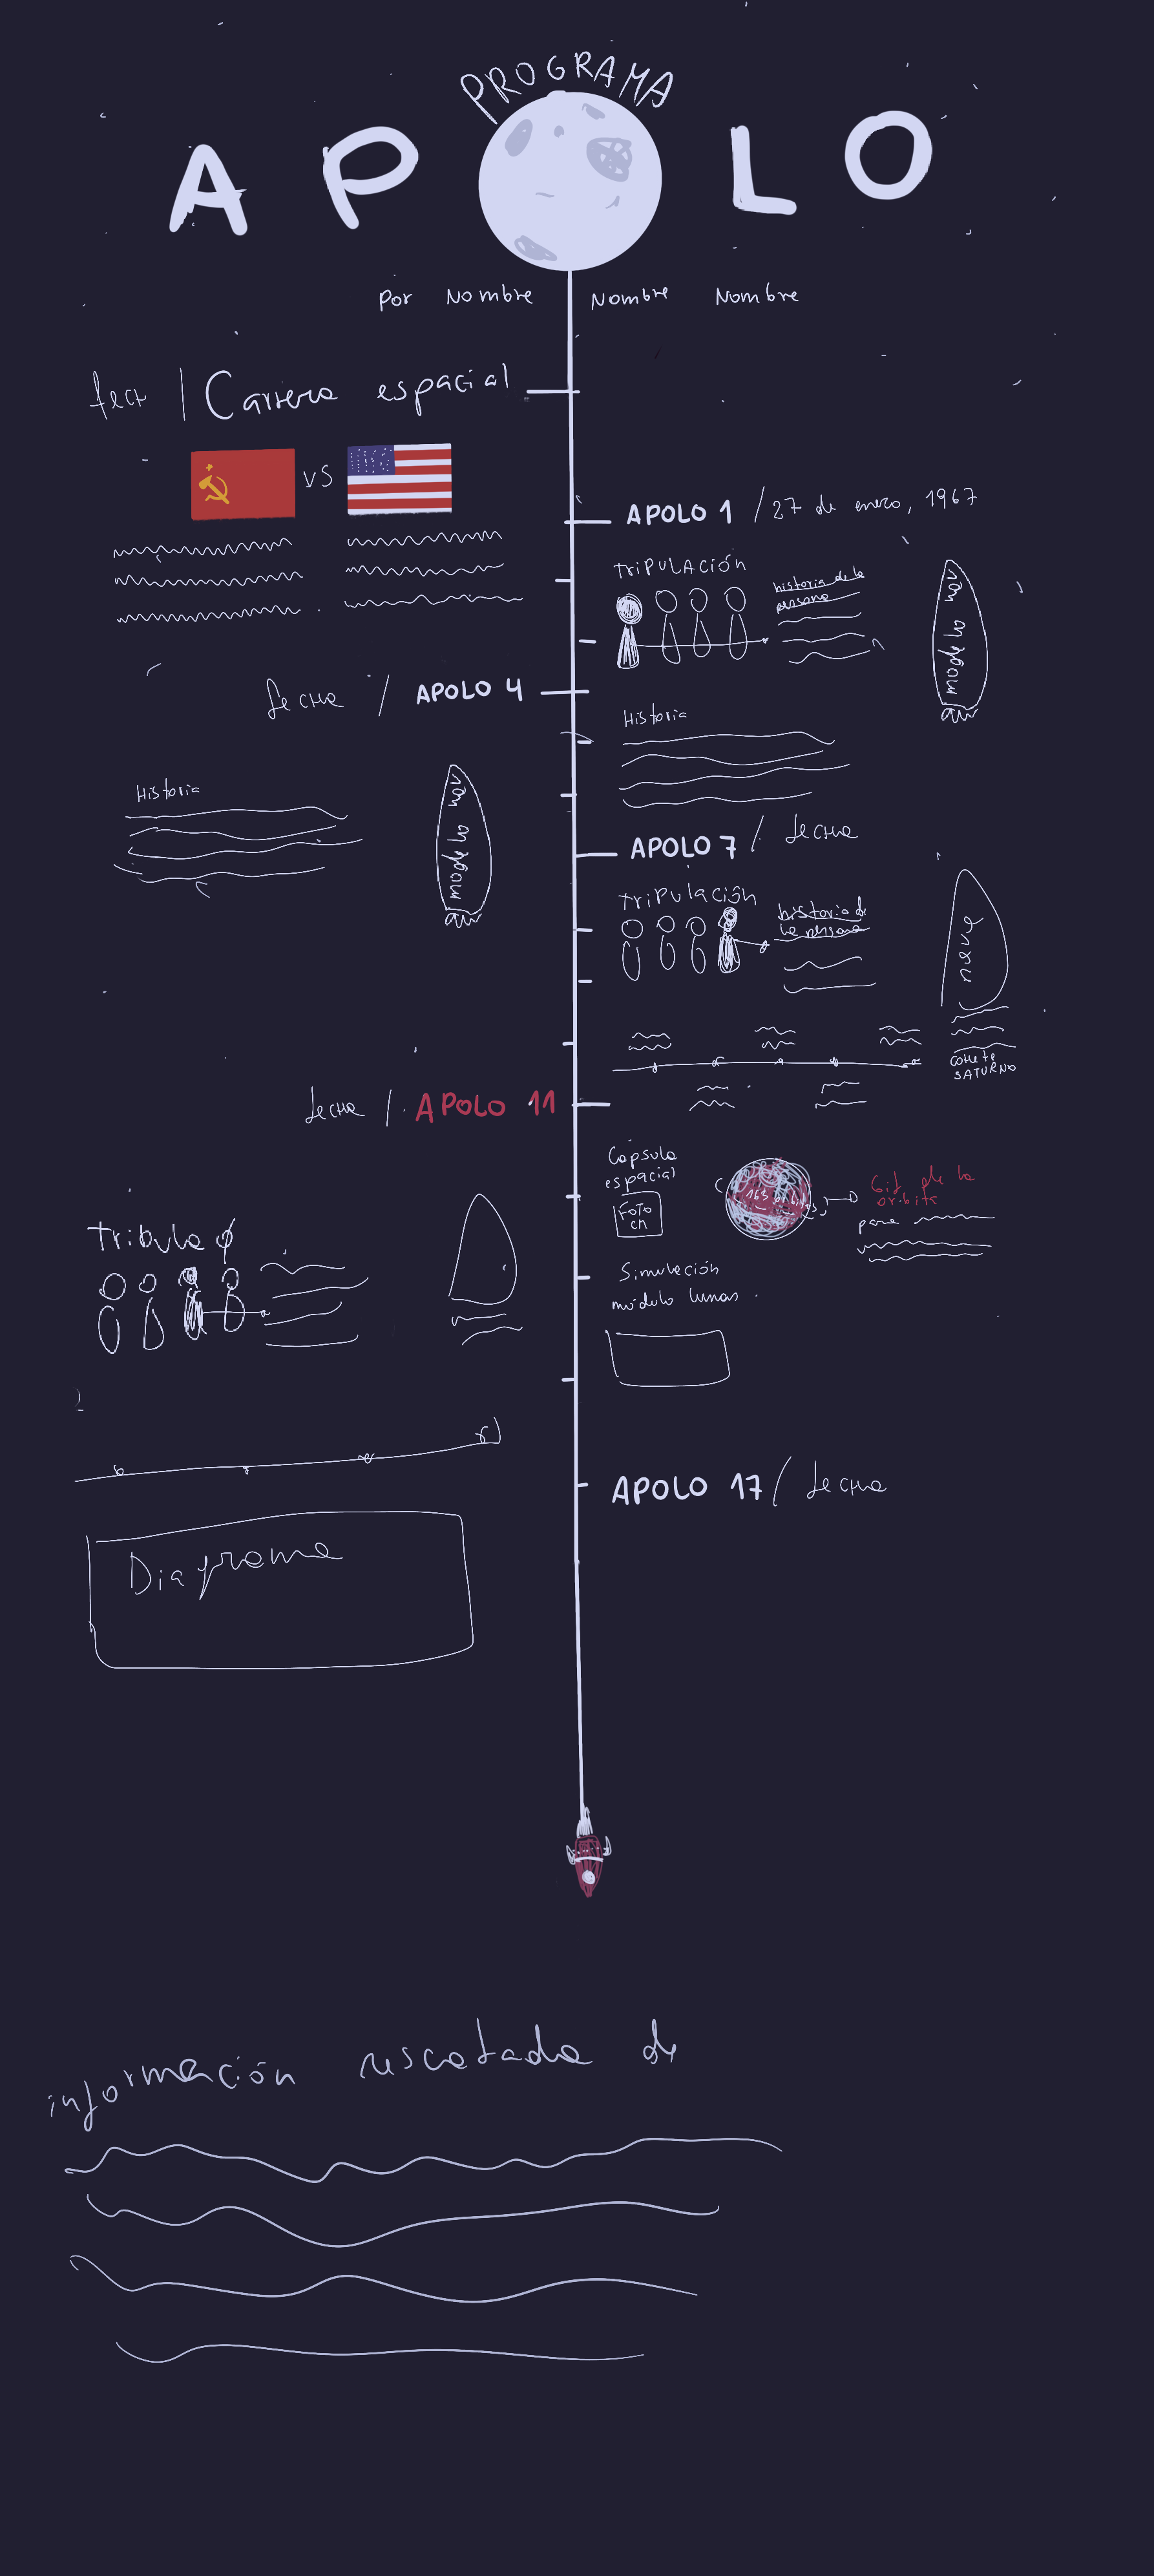 PROGRAMA
AP LO
Por Nombre Nombre Nombre
fech / Carrera espacial
VS
APOLO 1 / 27 de enero, 1967
TRIPULACIÓN
historia de la
persona
fecha / APOLO 4
Historia
Historia
APOLO 7 / fecha
TRIPULACIÓN
historia de
la persona
nave
COHETE
SATURNO
fecha / APOLO 11
Cápsula
espacial
FOTO
CM
163 orbitas
Gif de la
órbita
para
Simulación
módulo lunar
Tribula
APOLO 17 / fecha
Diagrama
información rescatada de